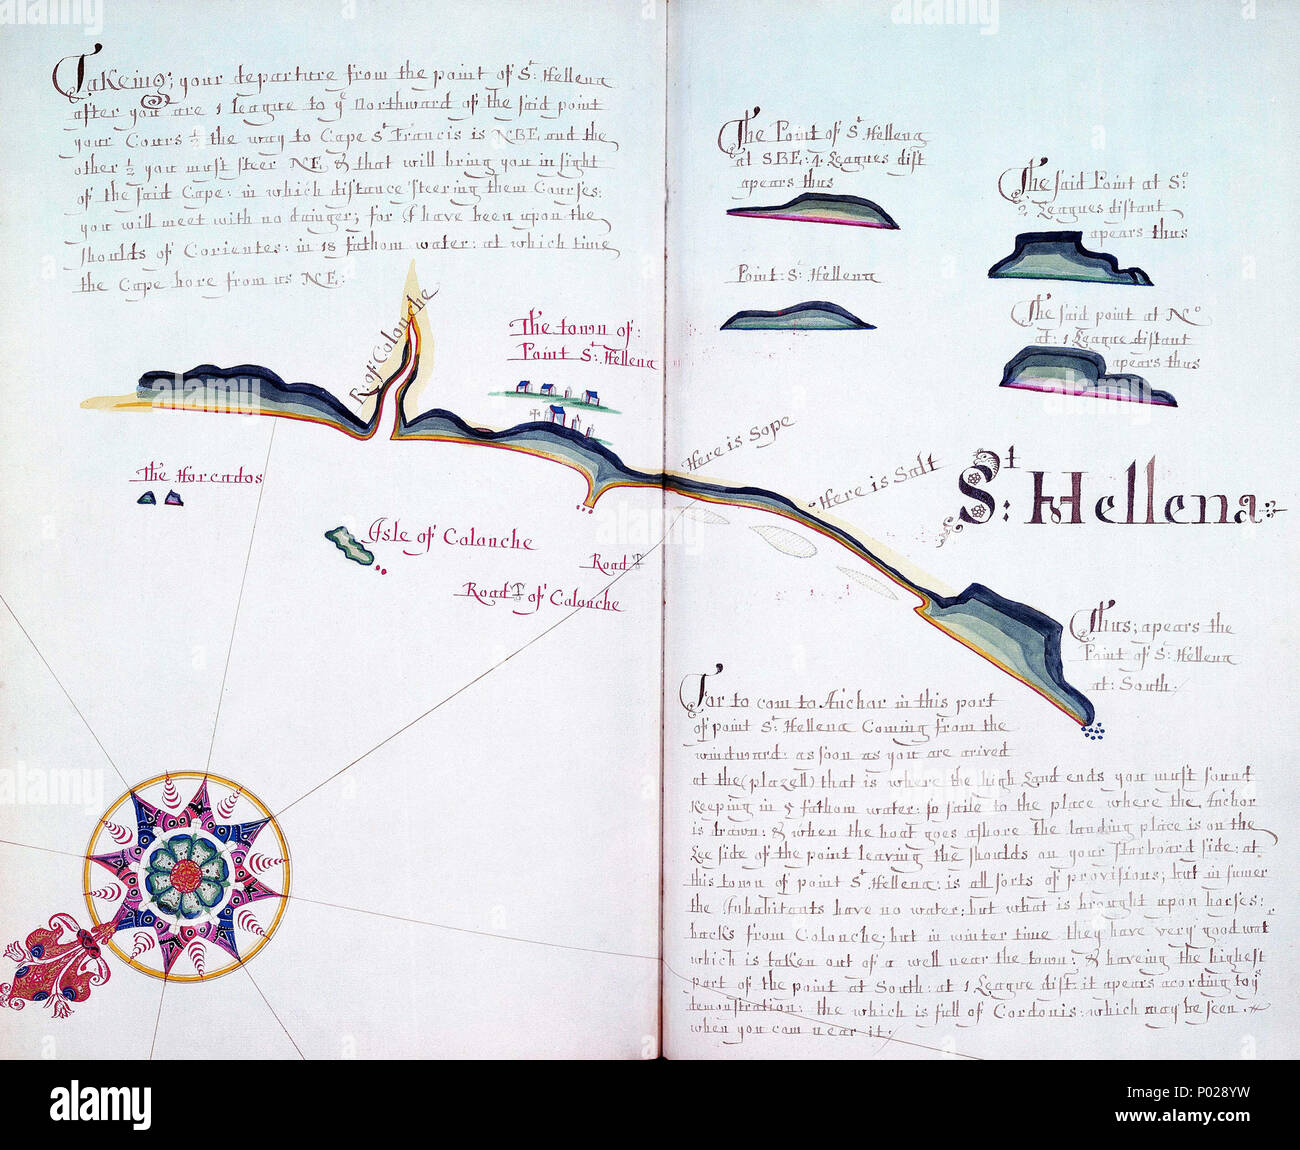 Takeing; your departure from the point of St: Hellena
after you are 1 league to ye Northward of the said point
your Cours ½ the way to Cape St Francis is NBE and the
other ½ you must steer NE & that will bring you in sight
of the said Cape: in which distance steering them Courses:
you will meet with no danger; for I have been upon the
shoulds of Corientes: in 18 fathom water: at which time
the Cape bore from us NE:
R: of Colonche
The town of:
Point St: Hellena
The Horcados
Isle of Colonche
Road
Road of Colonche
The Point of St Hellena
at SBE: 4 Leagues dist
apears thus
Point: St: Hellena
The said Point at So:
2 Leagues distant
apears thus
The said point at No
at: 1 League distant
apears thus
Here is Sope
Here is Salt
St: Hellena
Thus; apears the
Point of St: Hellena
at: South.
For to com to Anchar in this port
of point St: Hellena Coming from the
windward: as soon as you are arived
at the (plazell) that is where the high Land ends you must sound
Keeping in 5 fathom water: so saile to the place where the Anchor
is drawn: & when the boat goes ashore the landing place is on the
Lee side of the point leaving the shoulds on your starboard side: at
this town of point St Hellena: is all sorts of provisions; but in sumer
the Inhabitants have no water; but what is brought upon horses:
backs from Colonche; but in winter time they have very good wat
which is taken out of a well near the town: & haveing the highest
part of the point at South: at 1 League dist it apears acording to ye
demonstration: the which is full of Cordonis: which may be seen
when you com near it:
alamy
alamy
alamy
alamy
Image ID: P028YW
www.alamy.com